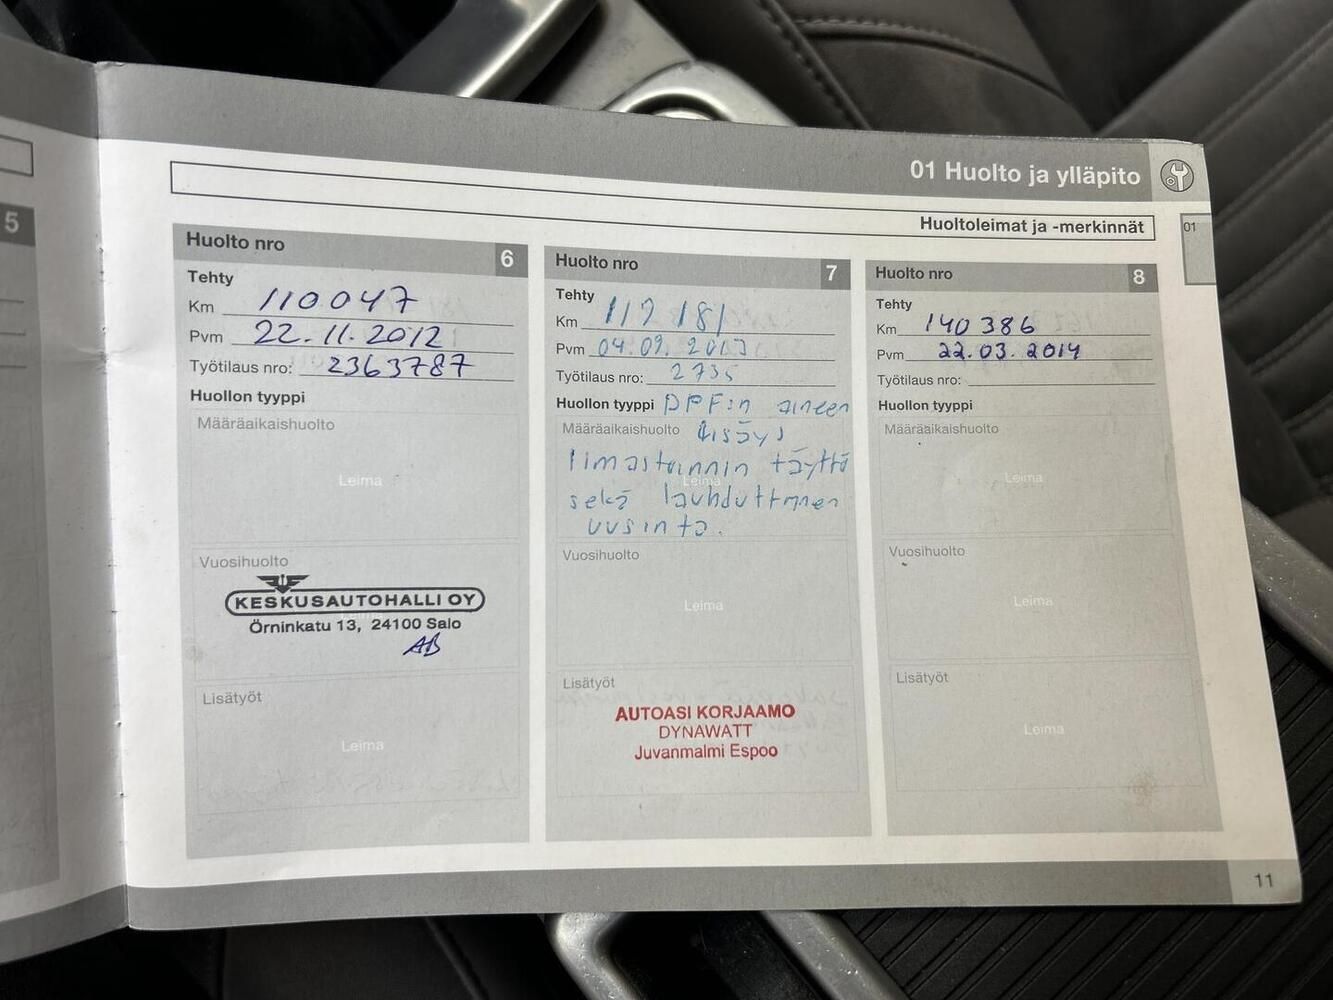 5
01 Huolto ja ylläpito
Huoltoleimat ja -merkinnät
01
Huolto nro 6
Tehty
Km 110047
Pvm 22.11.2012
Työtilaus nro: 2363787
Huollon tyyppi
Määräaikaishuolto
Leima
Vuosihuolto
KESKUSAUTOHALLI OY
Örninkatu 13, 24100 Salo
AB
Lisätyöt
Leima
Huolto nro 7
Tehty
Km 117 181
Pvm 04.09.2013
Työtilaus nro: 2735
Huollon tyyppi DPF:n aineen
Määräaikaishuolto lisäys
ilmastoinnin täyttö
Leima
sekä lauhduttimen
uusinta.
Vuosihuolto
Leima
Lisätyöt
AUTOASI KORJAAMO
DYNAWATT
Juvanmalmi Espoo
Huolto nro 8
Tehty
Km 140 386
Pvm 22.03.2014
Työtilaus nro:
Huollon tyyppi
Määräaikaishuolto
Leima
Vuosihuolto
Leima
Lisätyöt
Leima
11